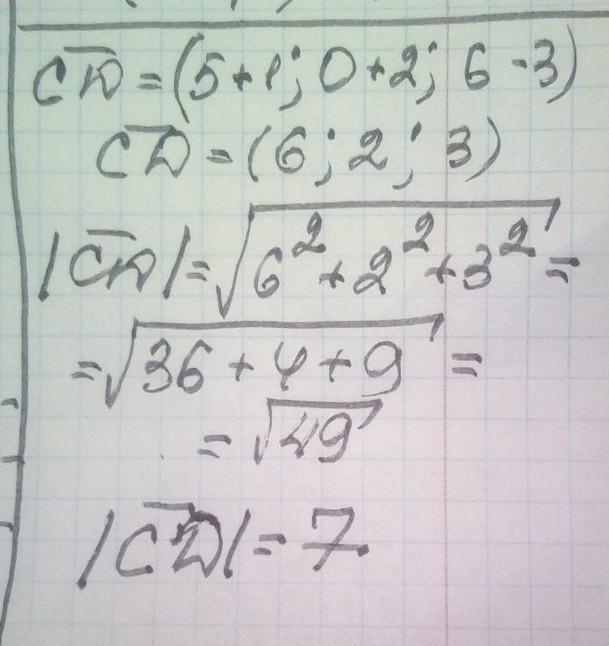 C̅D̅ = (5+1; 0+2; 6-3)
C̅D̅ = (6; 2; 3)
|C̅D̅| = √6²+2²+3² =
= √36+4+9 =
= √49
|C̅D̅| = 7.